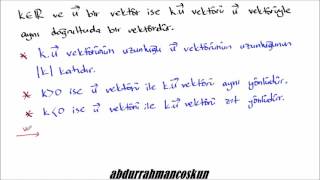 k∈R ve u⃗ bir vektör ise k.u⃗ vektörü u⃗ vektörüyle
aynı doğrultuda bir vektördür.
* k.u⃗ vektörünün uzunluğu u⃗ vektörünün uzunluğunun
|k| katıdır.
* k>0 ise u⃗ vektörü ile k.u⃗ vektörü aynı yönlüdür.
* k<0 ise u⃗ vektörü ile k.u⃗ vektörü zıt yönlüdür.
abdurrahmancoskun